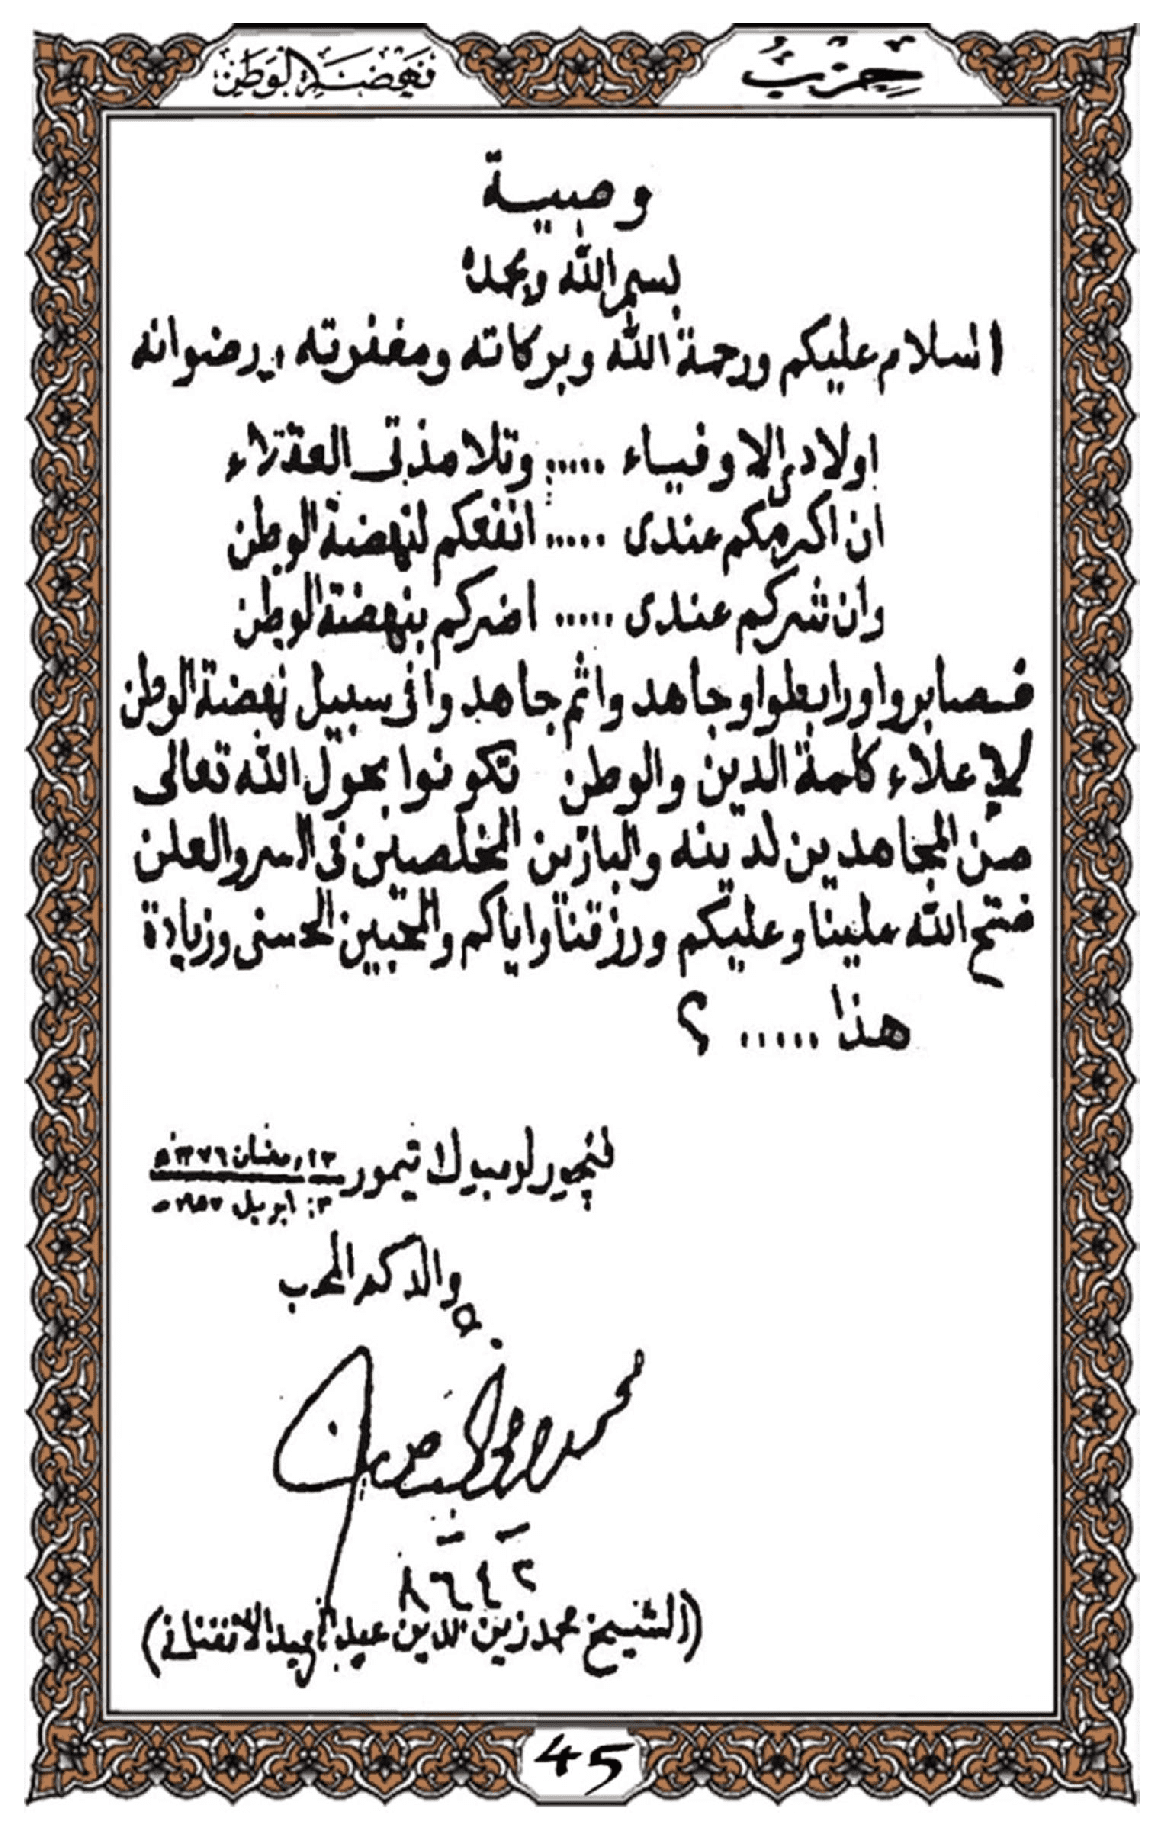 حِزْبُ
نَهْضَةِ الْوَطَنِ
وصية
بسم الله وبحمده
السلام عليكم ورحمة الله وبركاته ومغفرته ورضوانه
اولادى الاوفياء ..... وتلامذتى العقلاء
ان اكرمكم عندى ..... انفعكم لنهضة الوطن
وان شركم عندى ..... اضركم بنهضة الوطن
فصابروا ورابطوا وجاهدوا ثم جاهدوا فى سبيل نهضة الوطن
لإعلاء كلمة الدين والوطن تكونوا بحول الله تعالى
من المجاهدين لدينه والبارّين المخلصين فى السر والعلن
فتح الله علينا وعليكم ورزقنا واياكم والمحبين الحسنى وزيادة
هذا ..... ؟
لومبوك تيمور
رمضان ١٣٧٦هـ
ابريل
والدكم المحب
٨٦٤٢
(الشيخ محمد زين الدين عبد المجيد الانفنانى)
45